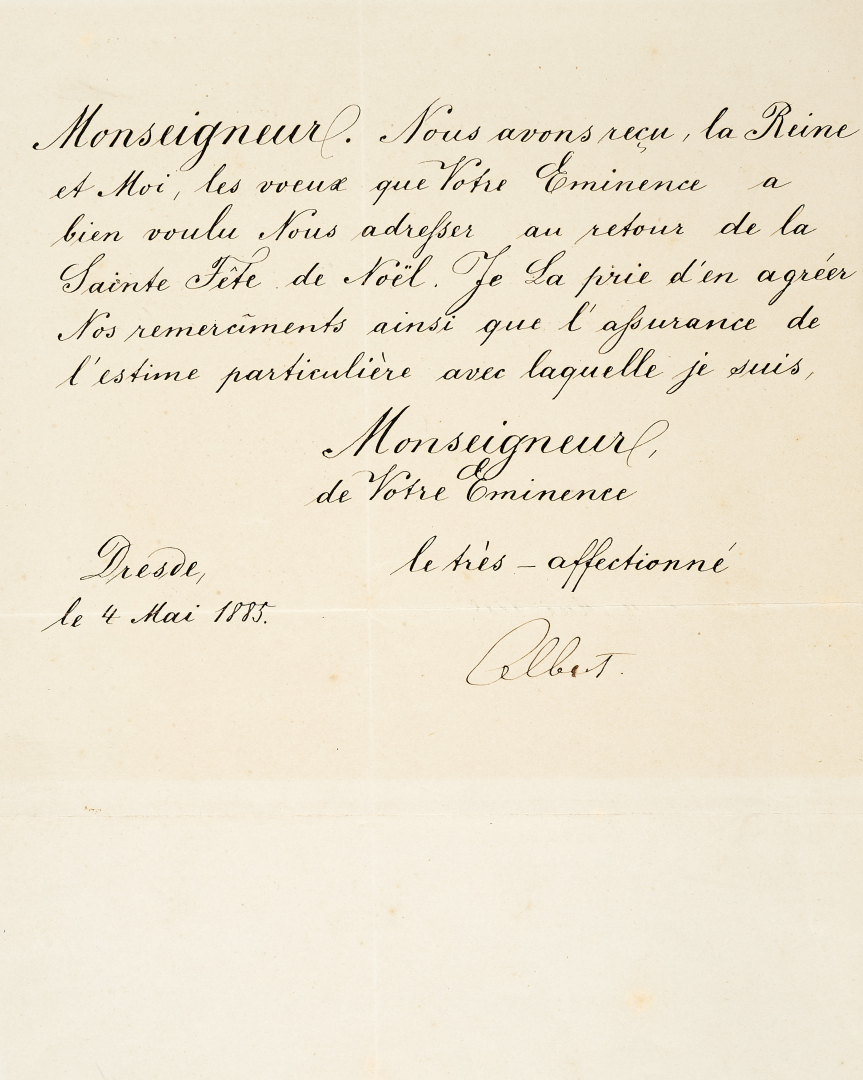 Monseigneur. Nous avons reçu, la Reine
et Moi, les voeux que Votre Eminence a
bien voulu Nous adresser au retour de la
Sainte Fête de Noël. Je La prie d'en agréer
Nos remercîments ainsi que l'assurance de
l'estime particulière avec laquelle je suis,
Monseigneur,
de Votre Eminence
le très-affectionné
Dresde,
le 4 Mai 1885.
Albert.